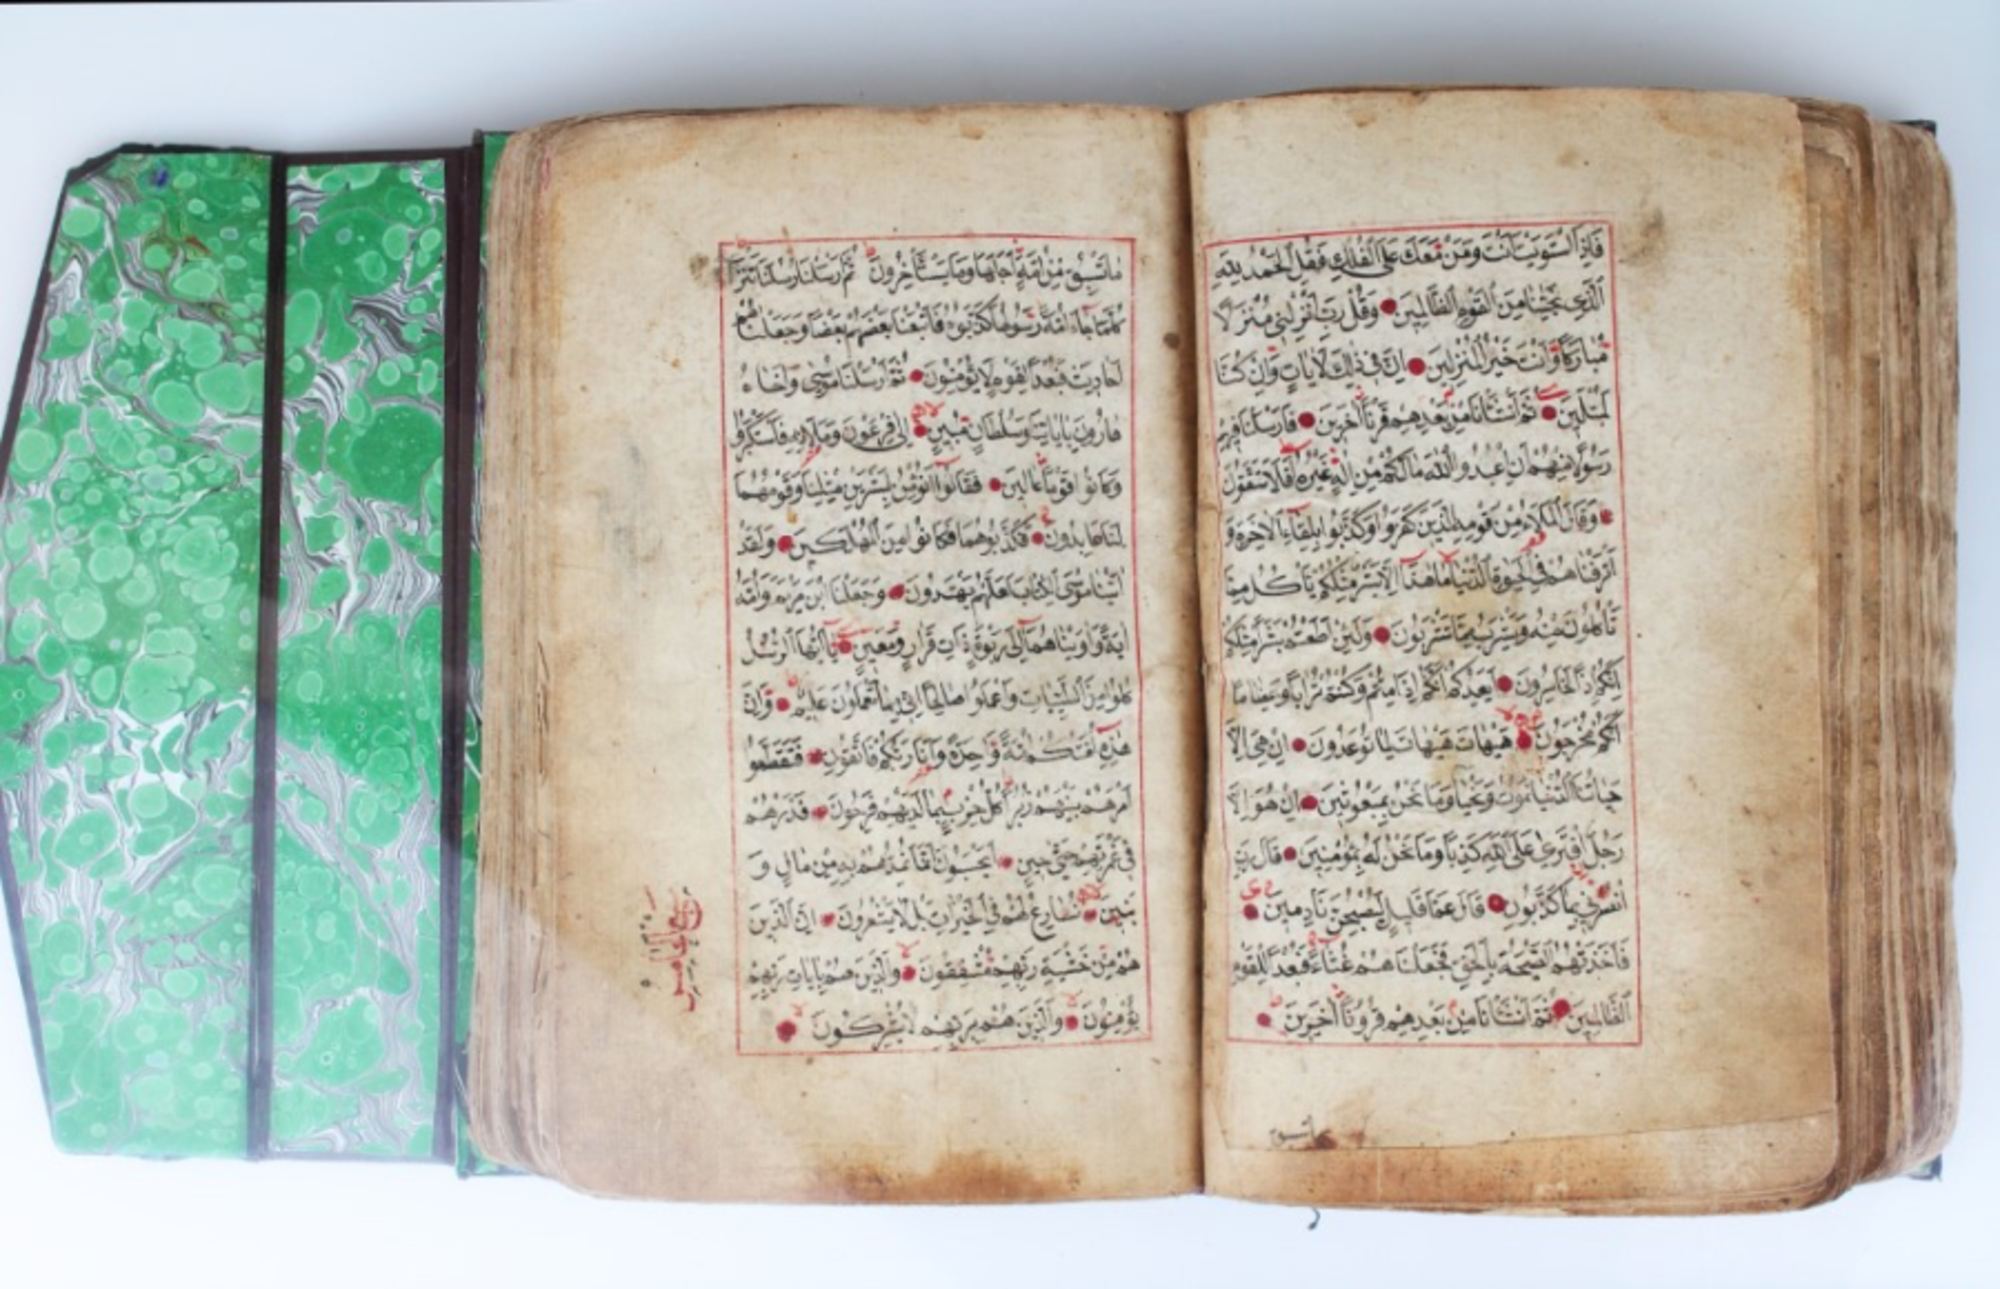 فَاِذَا اسْتَوَيْتَ اَنْتَ وَمَنْ مَعَكَ عَلَى الْفُلْكِ فَقُلِ الْحَمْدُ لِلّٰهِ
الَّذِي نَجّٰينَا مِنَ الْقَوْمِ الظَّالِمِينَ وَقُلْ رَبِّ اَنْزِلْنِي مُنْزَلًا
مُبَارَكًا وَاَنْتَ خَيْرُ الْمُنْزِلِينَ اِنَّ فِي ذٰلِكَ لَاٰيَاتٍ وَاِنْ كُنَّا
لَمُبْتَلِينَ ثُمَّ اَنْشَأْنَا مِنْ بَعْدِهِمْ قَرْنًا اٰخَرِينَ فَاَرْسَلْنَا فِيهِمْ
رَسُولًا مِنْهُمْ اَنِ اعْبُدُوا اللّٰهَ مَا لَكُمْ مِنْ اِلٰهٍ غَيْرُهُ اَفَلَا تَتَّقُونَ
وَقَالَ الْمَلَاُ مِنْ قَوْمِهِ الَّذِينَ كَفَرُوا وَكَذَّبُوا بِلِقَاءِ الْاٰخِرَةِ وَ
اَتْرَفْنَاهُمْ فِي الْحَيٰوةِ الدُّنْيَا مَا هٰذَا اِلَّا بَشَرٌ مِثْلُكُمْ يَأْكُلُ مِمَّا
تَأْكُلُونَ مِنْهُ وَيَشْرَبُ مِمَّا تَشْرَبُونَ وَلَئِنْ اَطَعْتُمْ بَشَرًا مِثْلَكُمْ
اِنَّكُمْ اِذًا لَخَاسِرُونَ اَيَعِدُكُمْ اَنَّكُمْ اِذَا مِتُّمْ وَكُنْتُمْ تُرَابًا وَعِظَامًا
اَنَّكُمْ مُخْرَجُونَ هَيْهَاتَ هَيْهَاتَ لِمَا تُوعَدُونَ اِنْ هِيَ اِلَّا
حَيَاتُنَا الدُّنْيَا نَمُوتُ وَنَحْيَا وَمَا نَحْنُ بِمَبْعُوثِينَ اِنْ هُوَ اِلَّا
رَجُلٌ افْتَرٰى عَلَى اللّٰهِ كَذِبًا وَمَا نَحْنُ لَهُ بِمُؤْمِنِينَ قَالَ رَبِّ
انْصُرْنِي بِمَا كَذَّبُونِ قَالَ عَمَّا قَلِيلٍ لَيُصْبِحُنَّ نَادِمِينَ
فَاَخَذَتْهُمُ الصَّيْحَةُ بِالْحَقِّ فَجَعَلْنَاهُمْ غُثَاءً فَبُعْدًا لِلْقَوْمِ
الظَّالِمِينَ ثُمَّ اَنْشَأْنَا مِنْ بَعْدِهِمْ قُرُونًا اٰخَرِينَ
مَا تَسْبِقُ مِنْ اُمَّةٍ اَجَلَهَا وَمَا يَسْتَأْخِرُونَ ثُمَّ اَرْسَلْنَا رُسُلَنَا تَتْرَا
كُلَّمَا جَاءَ اُمَّةً رَسُولُهَا كَذَّبُوهُ فَاَتْبَعْنَا بَعْضَهُمْ بَعْضًا وَجَعَلْنَاهُمْ
اَحَادِيثَ فَبُعْدًا لِقَوْمٍ لَا يُؤْمِنُونَ ثُمَّ اَرْسَلْنَا مُوسٰى وَاَخَاهُ
هَارُونَ بِاٰيَاتِنَا وَسُلْطَانٍ مُبِينٍ اِلٰى فِرْعَوْنَ وَمَلَائِهِ فَاسْتَكْبَرُوا
وَكَانُوا قَوْمًا عَالِينَ فَقَالُوا اَنُؤْمِنُ لِبَشَرَيْنِ مِثْلِنَا وَقَوْمُهُمَا
لَنَا عَابِدُونَ فَكَذَّبُوهُمَا فَكَانُوا مِنَ الْمُهْلَكِينَ وَلَقَدْ
اٰتَيْنَا مُوسَى الْكِتَابَ لَعَلَّهُمْ يَهْتَدُونَ وَجَعَلْنَا ابْنَ مَرْيَمَ وَاُمَّهُ
اٰيَةً وَاٰوَيْنَاهُمَا اِلٰى رَبْوَةٍ ذَاتِ قَرَارٍ وَمَعِينٍ يَا اَيُّهَا الرُّسُلُ
كُلُوا مِنَ الطَّيِّبَاتِ وَاعْمَلُوا صَالِحًا اِنِّي بِمَا تَعْمَلُونَ عَلِيمٌ وَاِنَّ
هٰذِهِ اُمَّتُكُمْ اُمَّةً وَاحِدَةً وَاَنَا رَبُّكُمْ فَاتَّقُونِ فَتَقَطَّعُوا
اَمْرَهُمْ بَيْنَهُمْ زُبُرًا كُلُّ حِزْبٍ بِمَا لَدَيْهِمْ فَرِحُونَ فَذَرْهُمْ
فِي غَمْرَتِهِمْ حَتّٰى حِينٍ اَيَحْسَبُونَ اَنَّمَا نُمِدُّهُمْ بِهِ مِنْ مَالٍ وَ
بَنِينَ نُسَارِعُ لَهُمْ فِي الْخَيْرَاتِ بَلْ لَا يَشْعُرُونَ اِنَّ الَّذِينَ
هُمْ مِنْ خَشْيَةِ رَبِّهِمْ مُشْفِقُونَ وَالَّذِينَ هُمْ بِاٰيَاتِ رَبِّهِمْ
يُؤْمِنُونَ وَالَّذِينَ هُمْ بِرَبِّهِمْ لَا يُشْرِكُونَ